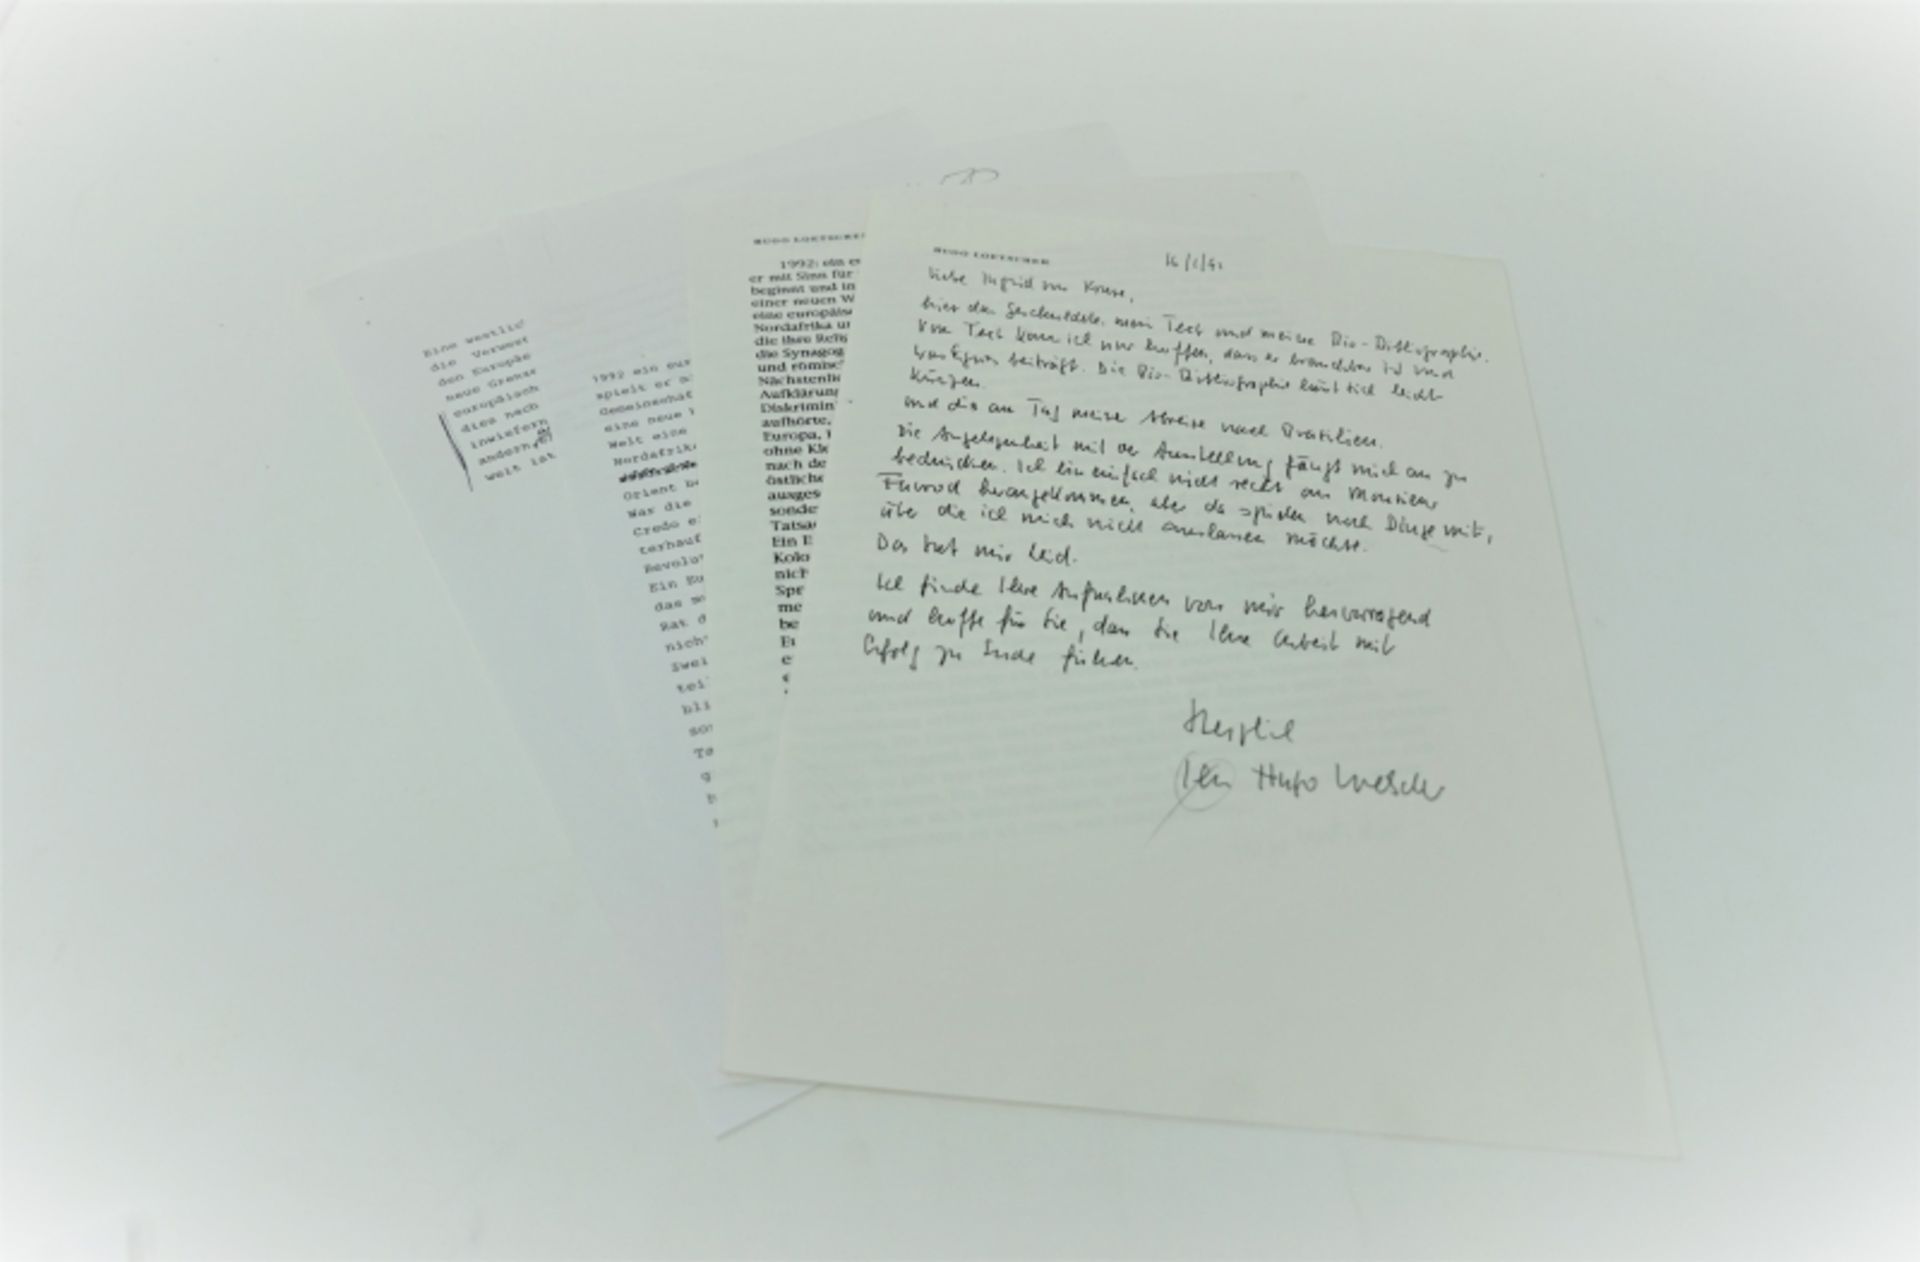 Eine westlic
die Verwest
den Europäe
neue Grenze
europäisch
dies nach
inwiefern
andern
welt ist
1992 ein eur
spielt er m
Gemeinschaf
eine neue
Welt eine
Nordafrik
Orient be
War die
Credo e
terhauf
Revolu
Ein Eu
das
Rat d
nich
Zwei
tei
bli
so
Ta
g
HUGO LOETSCHER
1992: ein e
er mit Sinn für
beginnt und in
einer neuen W
eine europäis
Nordafrika u
die ihre Relig
die Synagog
und römisc
Nächstenli
Aufklärung
Diskrimin
aufhörte,
Europa,
ohne Kle
nach de
östliche
ausges
sonde
Tatsa
Ein E
Kolo
nich
Spr
me
be
Eu
e
HUGO LOETSCHER
Liebe Ingrid von Kruse,
hier das Geschuldete. mein Text und meine Bio-Bibliographie.
Vom Text kann ich nur hoffen, dass er brauchbar ist und
was Eignes beiträgt. Die Bio-Bibliographie lässt sich leicht
kürzen.
und dies am Tag meiner Abreise nach Brasilien.
Die Angelegenheit mit der Ausstellung fängt mich an zu
bedrücken. Ich bin einfach nicht recht an Monsieur
herangekommen, aber da spielen noch Dinge mit,
über die ich mich nicht auslassen möchte.
Das tut mir leid.
Ich finde Ihre Aufnahmen von mir hervorragend
und hoffe für Sie, dass Sie Ihre Arbeit mit
Erfolg zu Ende führen.
Herzlich
Ihr Hugo Loetscher